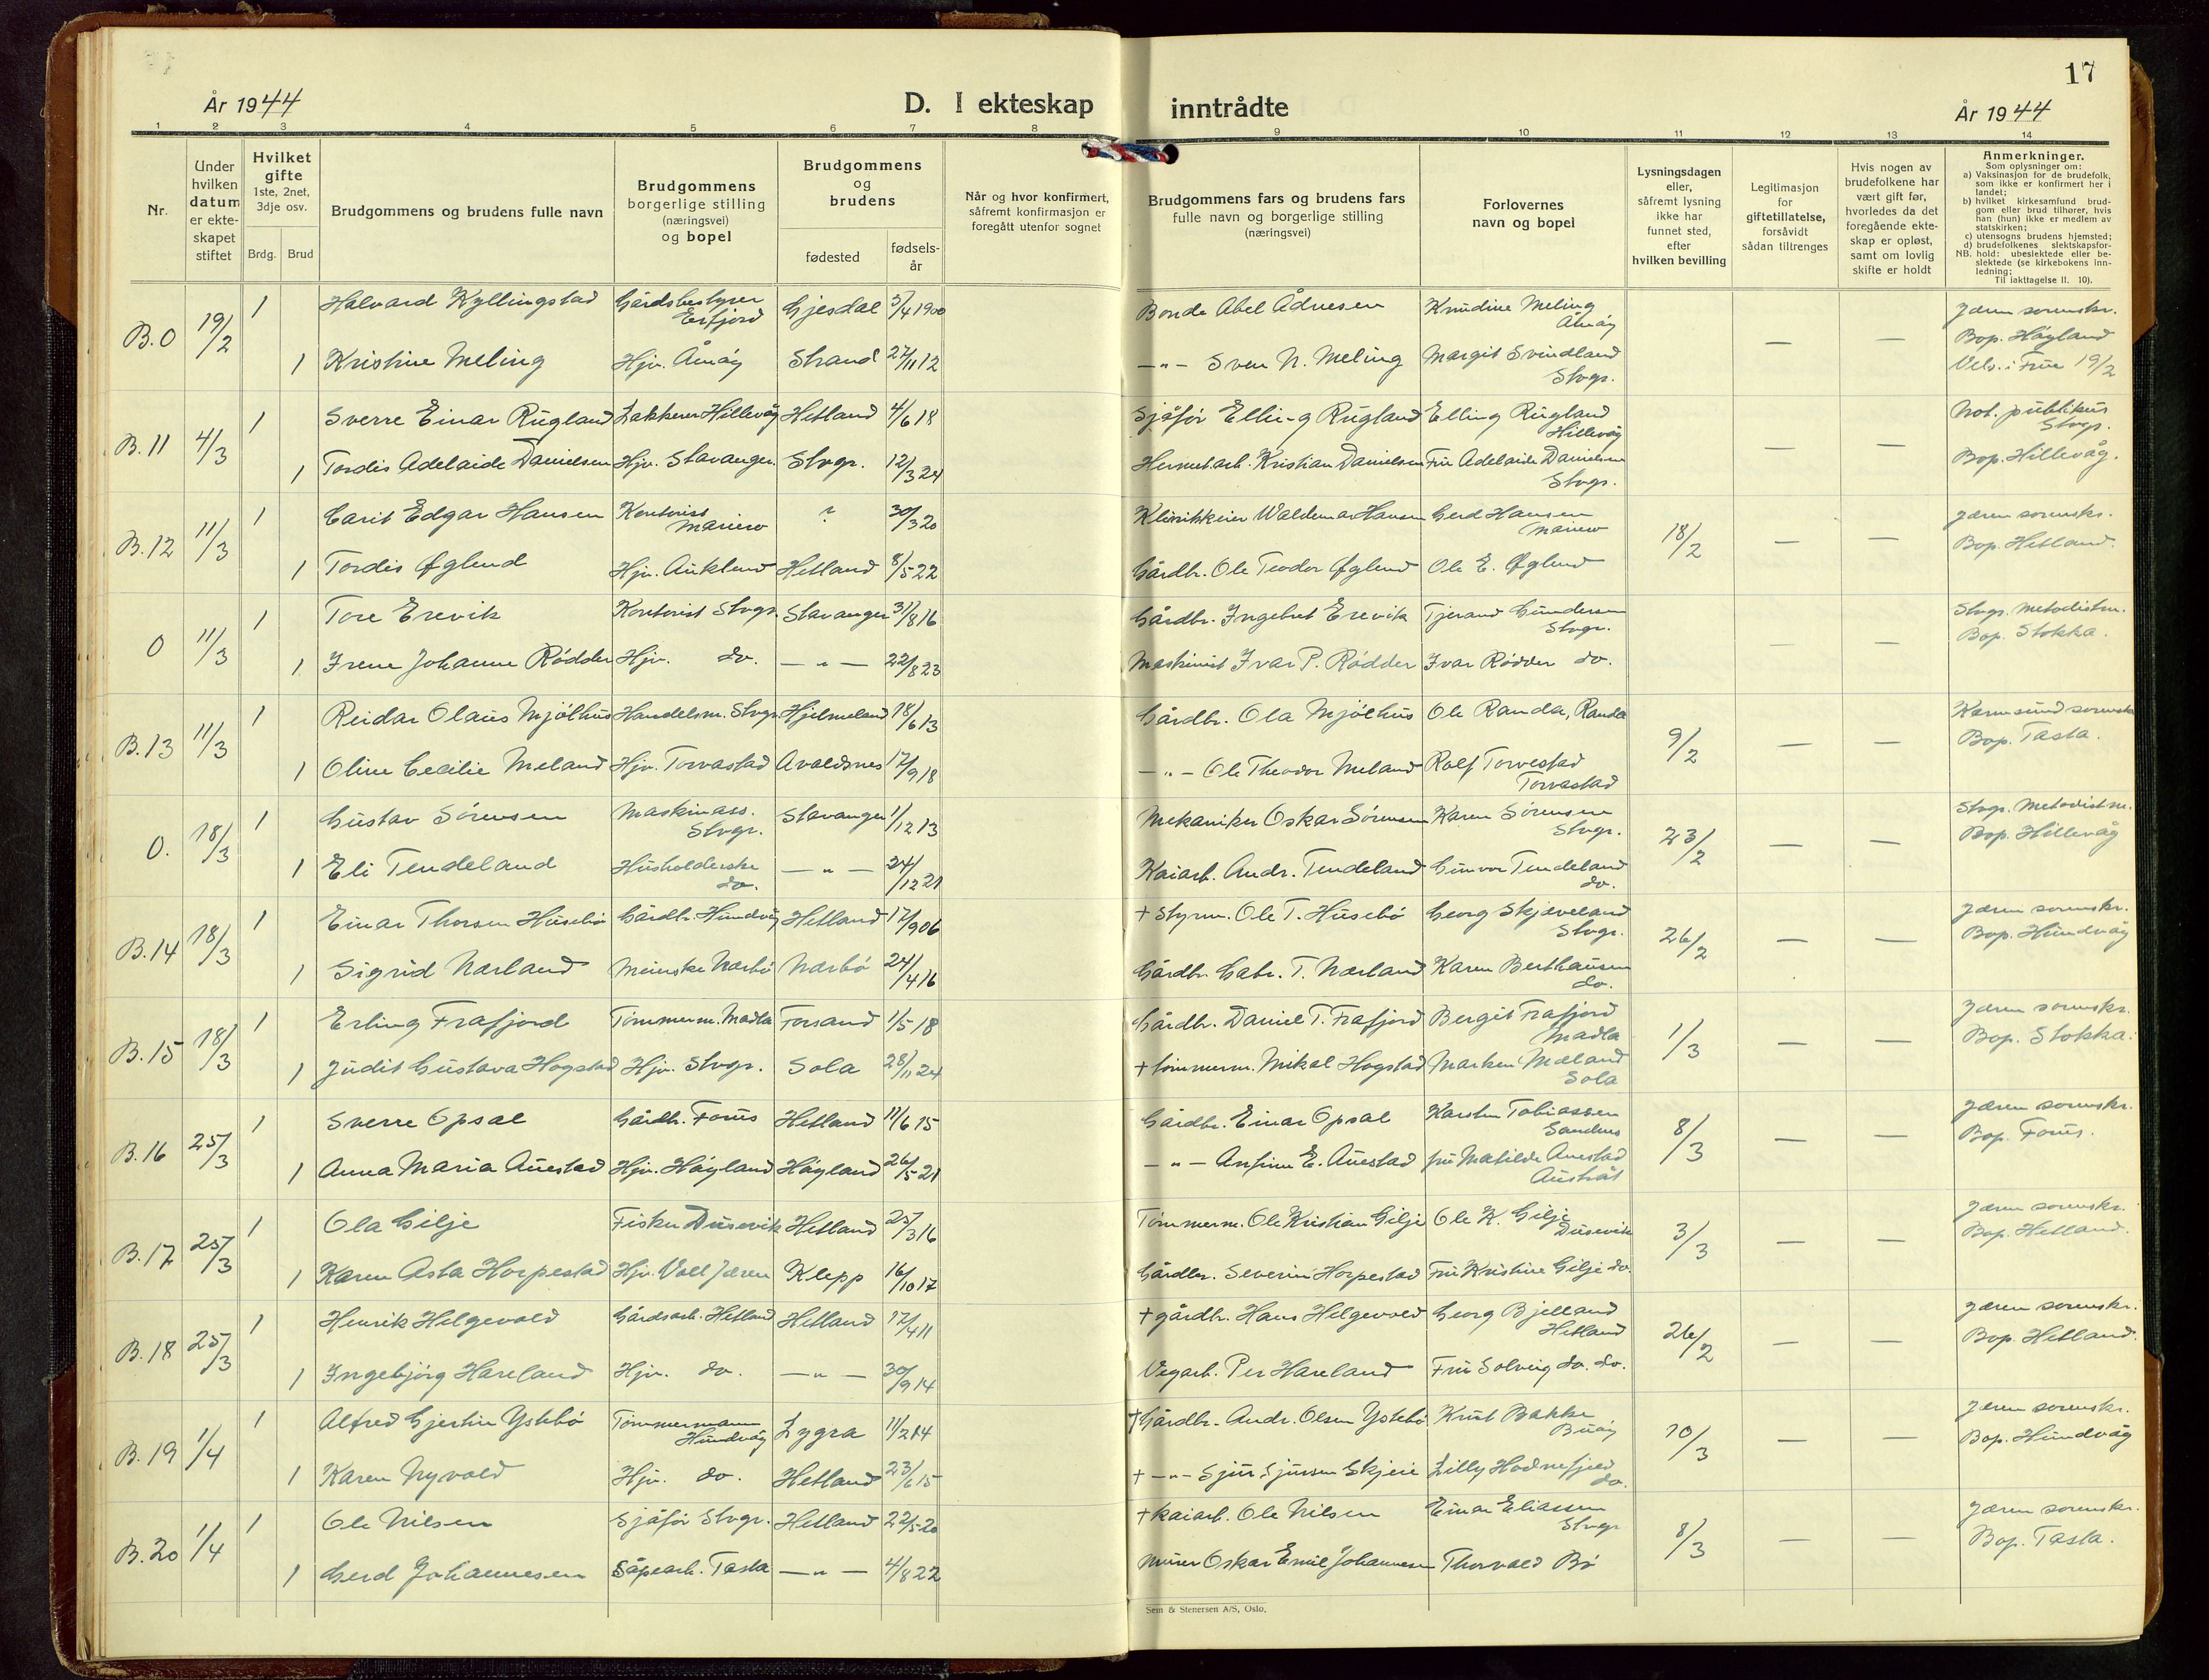 17
År 1944
D. I ekteskap inntrådte
År 1944
1 2 3 4 5 6 7 8 9 10 11 12 13 14
Nr.
Under hvilken datum er ekteskapet stiftet
Hvilket gifte 1ste, 2net, 3dje osv.
Brdg. Brud
Brudgommens og brudens fulle navn
Brudgommens borgerlige stilling (næringsvei) og bopel
Brudgommens og brudens
fødested
fødsels-år
Når og hvor konfirmert, såfremt konfirmasjon er foregått utenfor sognet
Brudgommens fars og brudens fars fulle navn og borgerlige stilling (næringsvei)
Forlovernes navn og bopel
Lysningsdagen eller, såfremt lysning ikke har funnet sted, efter hvilken bevilling
Legitimasjon for giftetillatelse, forsåvidt sådan tiltrenges
Hvis nogen av brudefolkene har vært gift før, hvorledes da det foregående ekteskap er opløst, samt om lovlig skifte er holdt
Anmerkninger.
Som oplysninger om:
a) Vaksinasjon for de brudefolk, som ikke er konfirmert her i landet;
b) hvilket kirkesamfund brudgom eller brud tilhører, hvis han (hun) ikke er medlem av statskirken;
c) utensogns brudens hjemsted;
d) brudefolkenes slektskapsforhold: ubeslektede eller beslektede (se kirkebokens innledning;
NB. Til iakttagelse II. 10).
B.0 19/2 1 Halvard Kyllingstad Gårdsbestyrer Erfjord Gjesdal 3/4 1900 Bonde Abel Ådnesen Knudine Meling Åmøy Jæren sorenskr.
1 Kristine Meling Hjv. Åmøy Strand 27/11 12 —"— Sven N. Meling Margit Svindland Stvgr. — — Bop. Høyland Vels. i Frue 19/2
B.11 4/3 1 Sverre Einar Rugland Lakkerer Hillevåg Hetland 4/6 18 Sjåfør Elling Rugland Elling Rugland Hillevåg Not. publikus Stvgr.
1 Tordis Adelaide Danielsen Hjv. Stavanger. Stvgr. 12/3 24 Hermet.arb. Kristian Danielsen Fru Adelaide Danielsen Stvgr. — — Bop. Hillevåg.
B.12 11/3 1 Carit Edgar Hansen Kontorist Mariero ? 30/3 20 Waldemar Hansen Gerd Hansen Mariero 18/2 — — Jæren sorenskr.
1 Tordis Øglend Hjv. Auklend Hetland 8/5 22 Gårdbr. Ole Teodor Øglend Ole E. Øglend Bop. Hetland.
0 11/3 1 Tore Erevik Kontorist Stvgr. Stavanger 31/8 16 Gårdbr. Ingebret Erevik Tjerand Gundersen Stvgr. — — Stvgr. Metodistm.
1 Irene Johanne Rødder Hjv. do. —"— 22/8 23 Maskinist Ivar P. Rødder Ivar Rødder do. Bop. Stokka.
B.13 11/3 1 Reidar Olaus Mjølhus Handelsm. Stvgr. Hjelmeland 18/6 13 Gårdbr. Ola Mjølhus Ole Randa, Randa 9/2 — — Karmsund sorenskr.
1 Oline Cecilie Meland Hjv. Torvastad Avaldsnes 17/9 18 —"— Ole Theodor Meland Rolf Torvestad Torvastad Bop. Tasta.
0. 18/3 1 Gustav Sørensen Maskinass. Stvgr. Stavanger 1/12 13 Mekaniker Oskar Sørensen Karen Sørensen Stvgr. 23/2 — — Stvgr. Metodistm.
1 Eli Tendeland Husholderske do. —"— 24/12 21 Kaiarb. Andr. Tendeland Gunvor Tendeland do. Bop. Hillevåg
B.14 18/3 1 Einar Thorsen Husebø Gårdbr. Hundvåg Hetland 17/9 06 + Styrm. Ole T. Husebø Georg Skjæveland Stvgr. 26/2 — — Jæren sorenskr.
1 Sigrid Nærland Meierske Nærbø Nærbø 24/4 16 Gårdbr. Gabr. T. Nærland Karen Berthausen do. Bop. Hundvåg
B.15 18/3 1 Erling Frafjord Tømmerm. Madla Forsand 1/5 18 Gårdbr. Daniel T. Frafjord Bergit Frafjord Madla 1/3 — — Jæren sorenskr.
1 Judit Gustava Hogstad Hjv. Stvgr. Sola 28/11 24 + tømmerm. Mikal Hogstad Marken Mæland Sola Bop. Stokka.
B.16 25/3 1 Sverre Opsal Gårdbr. Forus Hetland 11/6 15 Gårdbr. Einar Opsal Karsten Tobiassen Sandnes 8/3 — — Jæren sorenskr.
1 Anna Maria Auestad Hjv. Høyland Høyland 26/5 21 —"— Anfinn E. Auestad fru Matilde Auestad Austråt Bop. Forus.
B.17 25/3 1 Ola Gilje Fisker Dusevik Hetland 25/3 16 Tømmerm. Ole Kristian Gilje Ole K. Gilje Dusevik 3/3 — — Jæren sorenskr.
1 Karen Asta Horpestad Hjv. Voll Jæren Klepp 16/10 17 Gårdbr. Severin Horpestad Fru Kristine Gilje do. Bop. Hetland.
B.18 25/3 1 Henrik Helgevold Gårdsarb. Hetland Hetland 17/4 11 + gårdbr. Hans Helgevold Georg Bjelland Hetland 26/2 — — Jæren sorenskr.
1 Ingebjørg Hareland Hjv. do. —"— 30/9 14 Vegarb. Per Hareland Fru Solveig do. do. Bop. Hetland.
B.19 1/4 1 Alfred Gjertin Ystebø Tømmermann Hundvåg Lygra 11/2 14 + Gårdbr. Andr. Olsen Ystebø Knut Bakke Buøy 10/3 — — Jæren sorenskr.
1 Karen Nyvold Hjv. do. Hetland 23/6 15 + —"— Sjur Sjursen Skjeie Lilly Hodnefjeld do. Bop. Hundvåg
B.20 1/4 1 Ole Nilsen Sjåfør Stvgr. Hetland 22/5 20 + kaiarb. Ole Nilsen Einar Eliassen Stvgr 8/3 — — Jæren sorenskr.
1 Gerd Johannesen Såpearb. Tasta —"— 4/8 22 Murer Oskar Emil Johannesen Thorvald Bø Bop. Tasta.
Sem & Stenersen A/S, Oslo.